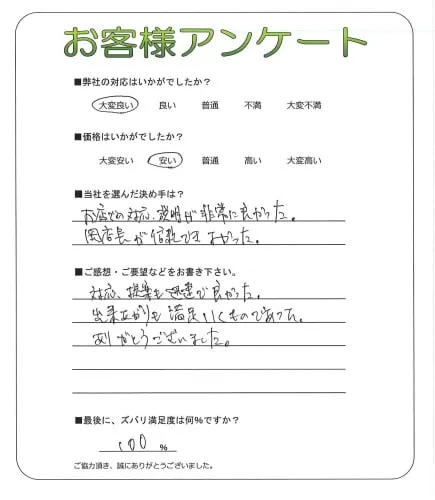 お客様アンケート
■弊社の対応はいかがでしたか？
大変良い 良い 普通 不満 大変不満
■価格はいかがでしたか？
大変安い 安い 普通 高い 大変高い
■当社を選んだ決め手は？
お店での対応、説明が非常に良かった。
岡店長が信頼できそうだった。
■ご感想・ご要望などをお書き下さい。
対応、提案も迅速で良かった。
出来上がりも満足いくものであった。
ありがとうございました。
■最後に、ズバリ満足度は何％ですか？
100 %
ご協力頂き、誠にありがとうございました。